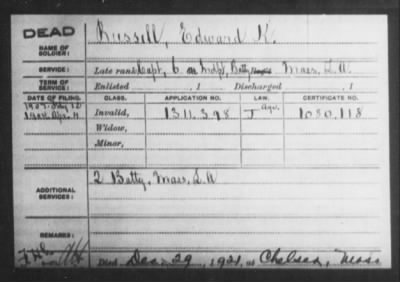 DEAD
NAME OF SOLDIER: Russell, Edward K.
SERVICE: Late rank Capt, 6 Batty Mass. L.A.
TERM OF SERVICE: Enlisted , 1 Discharged , 1
DATE OF FILING. CLASS. APPLICATION NO. LAW. CERTIFICATE NO.
Invalid, 1311.398 I 1080.118
Widow,
Minor,
ADDITIONAL SERVICES: 2 Batty, Mass. L.A.
REMARKS:
Died Dec. 29, 1921, at Chelsea, Mass